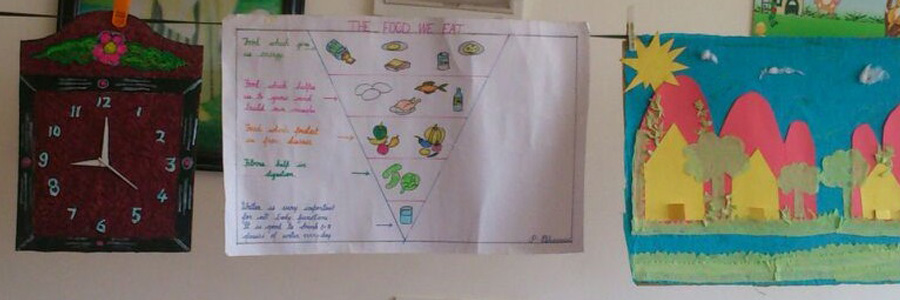 THE FOOD WE EAT
Food which give
us energy.
Food which helps
us to grow and
build our muscles
Food which Protect
us from disease.
Fibres help in
digestion.
Water is very important
for all body functions.
It is good to drink
glasses of water everyday
12
11
1
10
2
9
3
8
4
7
5
6